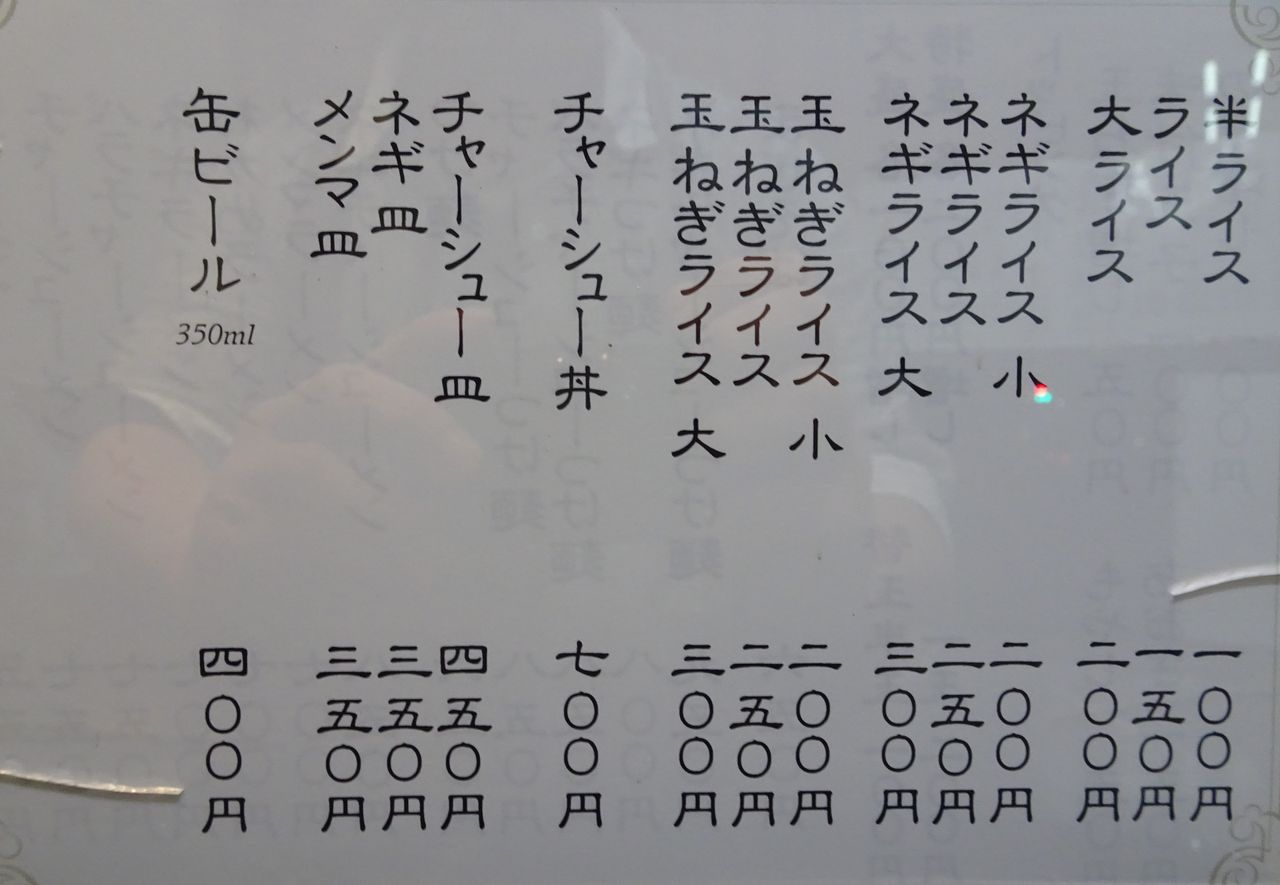 半ライス 一〇〇円
ライス 一五〇円
大ライス 二〇〇円
ネギライス 小 二〇〇円
ネギライス 二五〇円
ネギライス 大 三〇〇円
玉ねぎライス 小 二〇〇円
玉ねぎライス 二五〇円
玉ねぎライス 大 三〇〇円
チャーシュー丼 七〇〇円
チャーシュー皿 四五〇円
ネギ皿 三五〇円
メンマ皿 三五〇円
缶ビール 350ml 四〇〇円